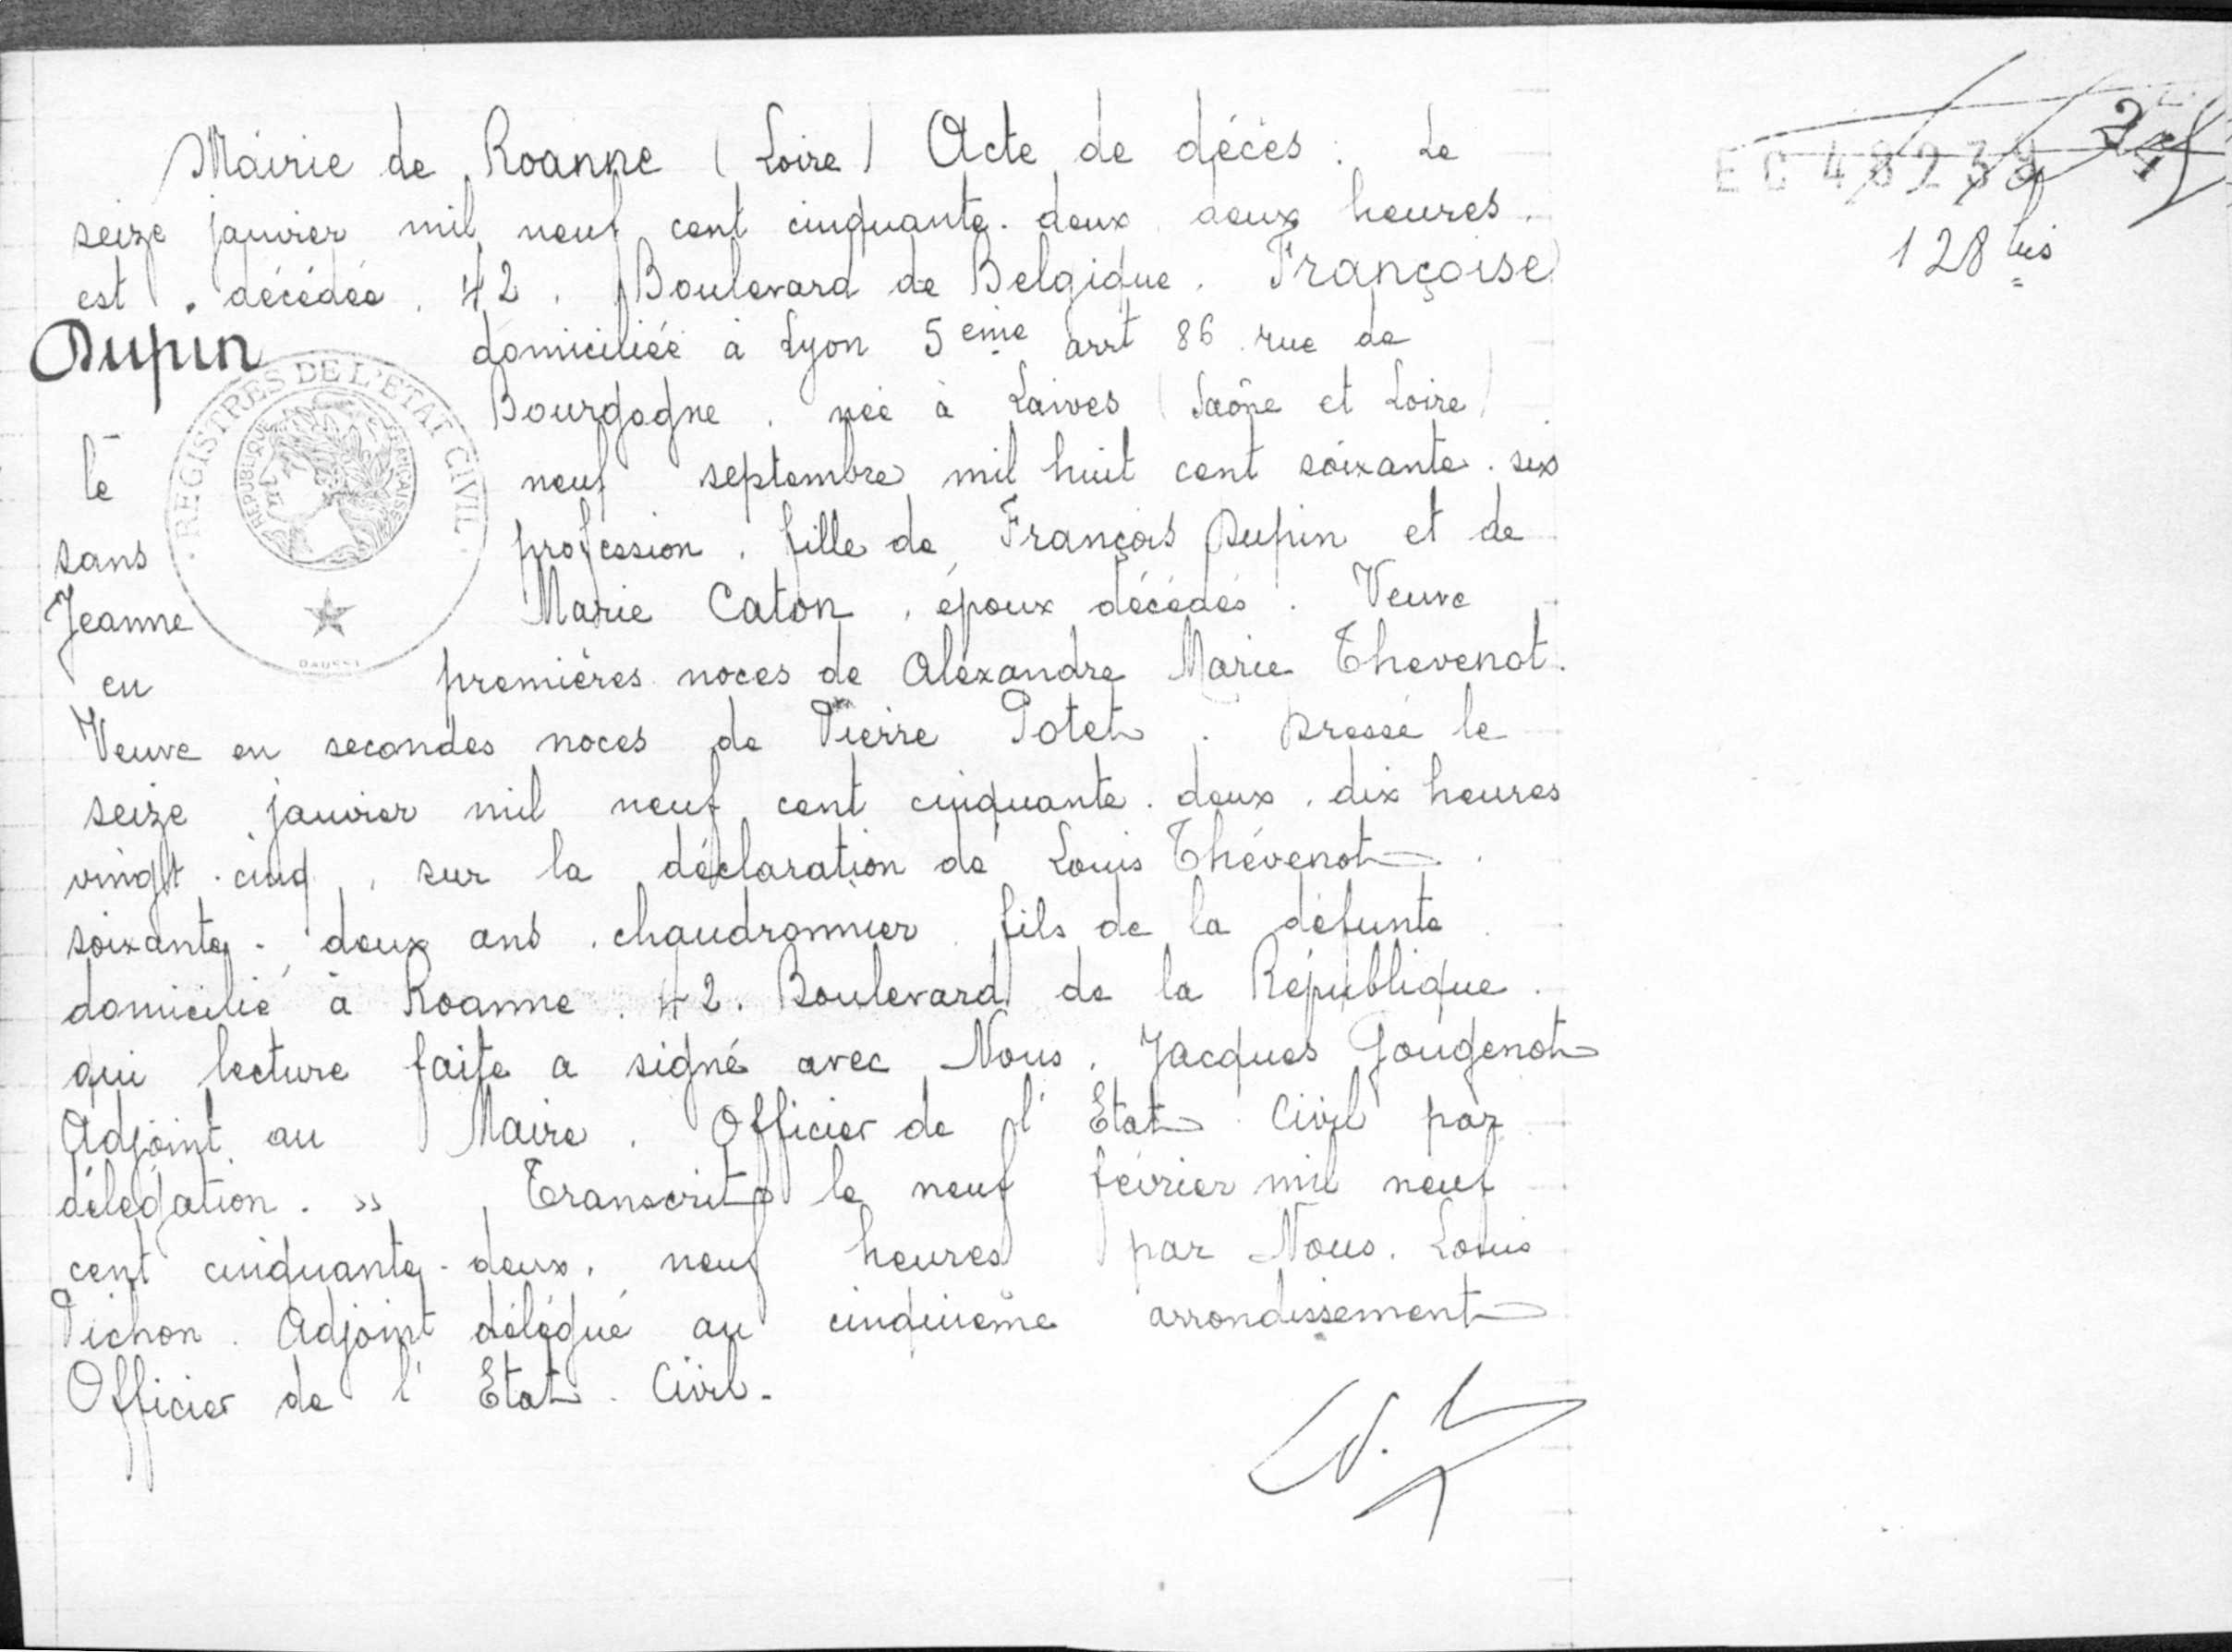 Mairie de Roanne (Loire) Acte de décès. Le
seize janvier mil neuf cent cinquante-deux, deux heures,
est décédée, 42, Boulevard de Belgique, Françoise
Dupin domiciliée à Lyon 5ème arrt 86 rue de
Bourgogne, née à Laives (Saône et Loire)
le neuf septembre mil huit cent soixante-six
sans profession, fille de François Dupin et de
Jeanne Marie Caton, époux décédés. Veuve
en premières noces de Alexandre Marie Thevenot.
Veuve en secondes noces de Pierre Potet. Dressé le
seize janvier mil neuf cent cinquante-deux, dix heures
vingt-cinq, sur la déclaration de Louis Thévenot
soixante-deux ans, chaudronnier, fils de la défunte
domicilié à Roanne, 42, Boulevard de la République.
qui lecture faite a signé avec Nous, Jacques Gougenot
Adjoint au Maire, Officier de l'Etat Civil par
délégation. » Transcrit le neuf février mil neuf
cent cinquante-deux, neuf heures par Nous, Louis
Pichon, Adjoint délégué au cinquième arrondissement
Officier de l'Etat Civil.
REGISTRES DE L'ETAT CIVIL
REPUBLIQUE FRANÇAISE
EC 48239
128 bis